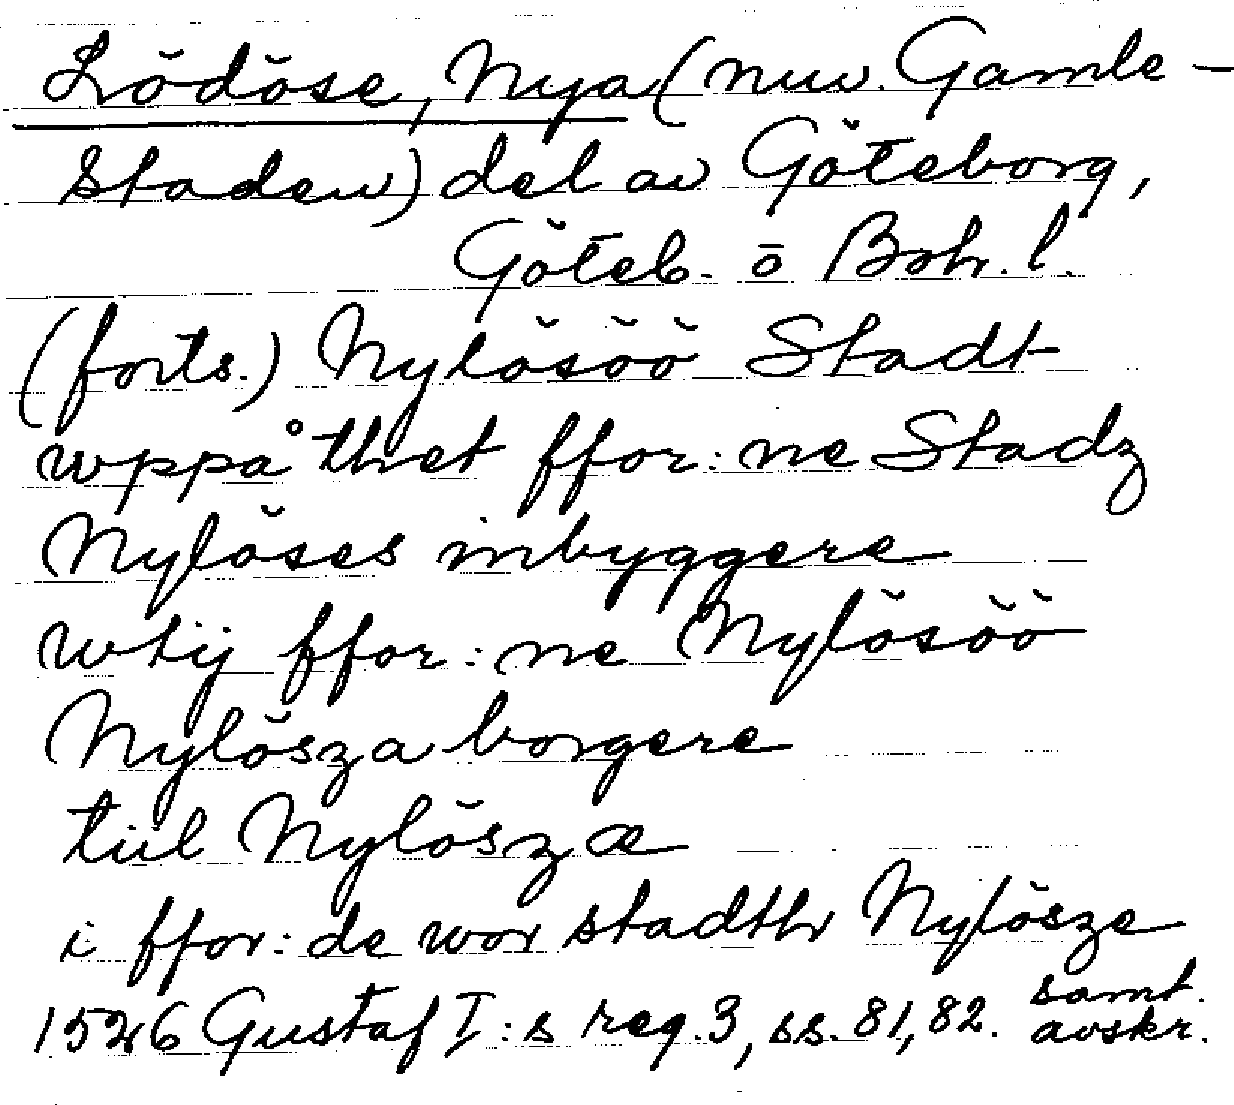 Lödöse, Nya (nuv. Gamle-
staden) del av Göteborg,
Göteb. o Boh. l.
(forts.) Nylösöö Stadt
wppå thet ffor: ne Stadz
Nylöses inbyggere
wtij ffor: ne Nylösöö
Nylösza borgere
tiil Nylöszæ
i ffor: de wor stadthr Nylösze
1526 Gustaf I:s reg. 3, ss. 81, 82. samt.
avskr.